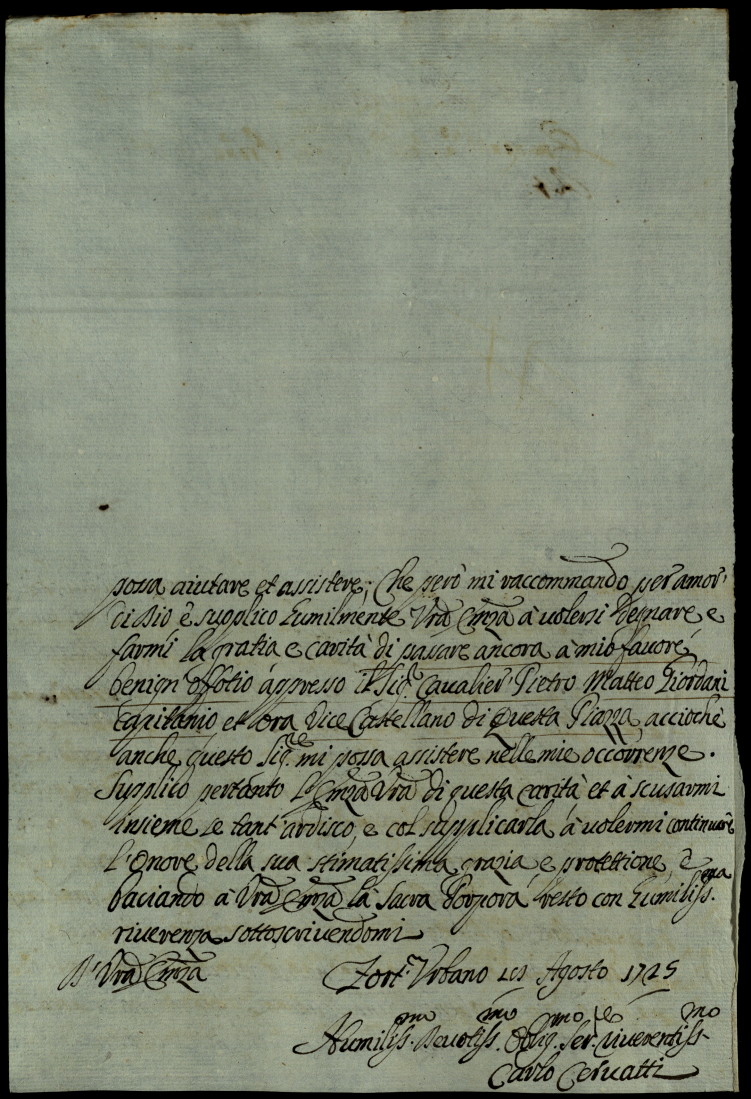 possa aiutare et assistere; Che però mi raccommando per amor'
di Dio è supplico humilmente Vrã Emzã à volersi degnare e
farmi la gratia e carità di passare àncora à mio favore
benign' offitio appresso il Sig.r Cavalier Pietro Matteo Giordani
Capitanio et hora Vice Castellano di questa Piazza, acciochè
anche questo Sig.re mi possa assistere nelle mie occorrenze.
Supplico pertanto L'Emzã Vrã di questa carità et à scusarmi
insieme se tant' ardisco, e col supplicarla à volermi continuare
L'onore della sua stimatissima grazia e protettione, è
baciando à Vrã Emzã la Sacra Porpora resto con humiliss.ma
riverenza sottoscrivendomi
D' Vrã Emzã Fort' Urbano Agosto 1725
Humiliss.mo Devotiss.mo Oblig.mo Ser.re riverentiss.mo
Carlo Cervatti